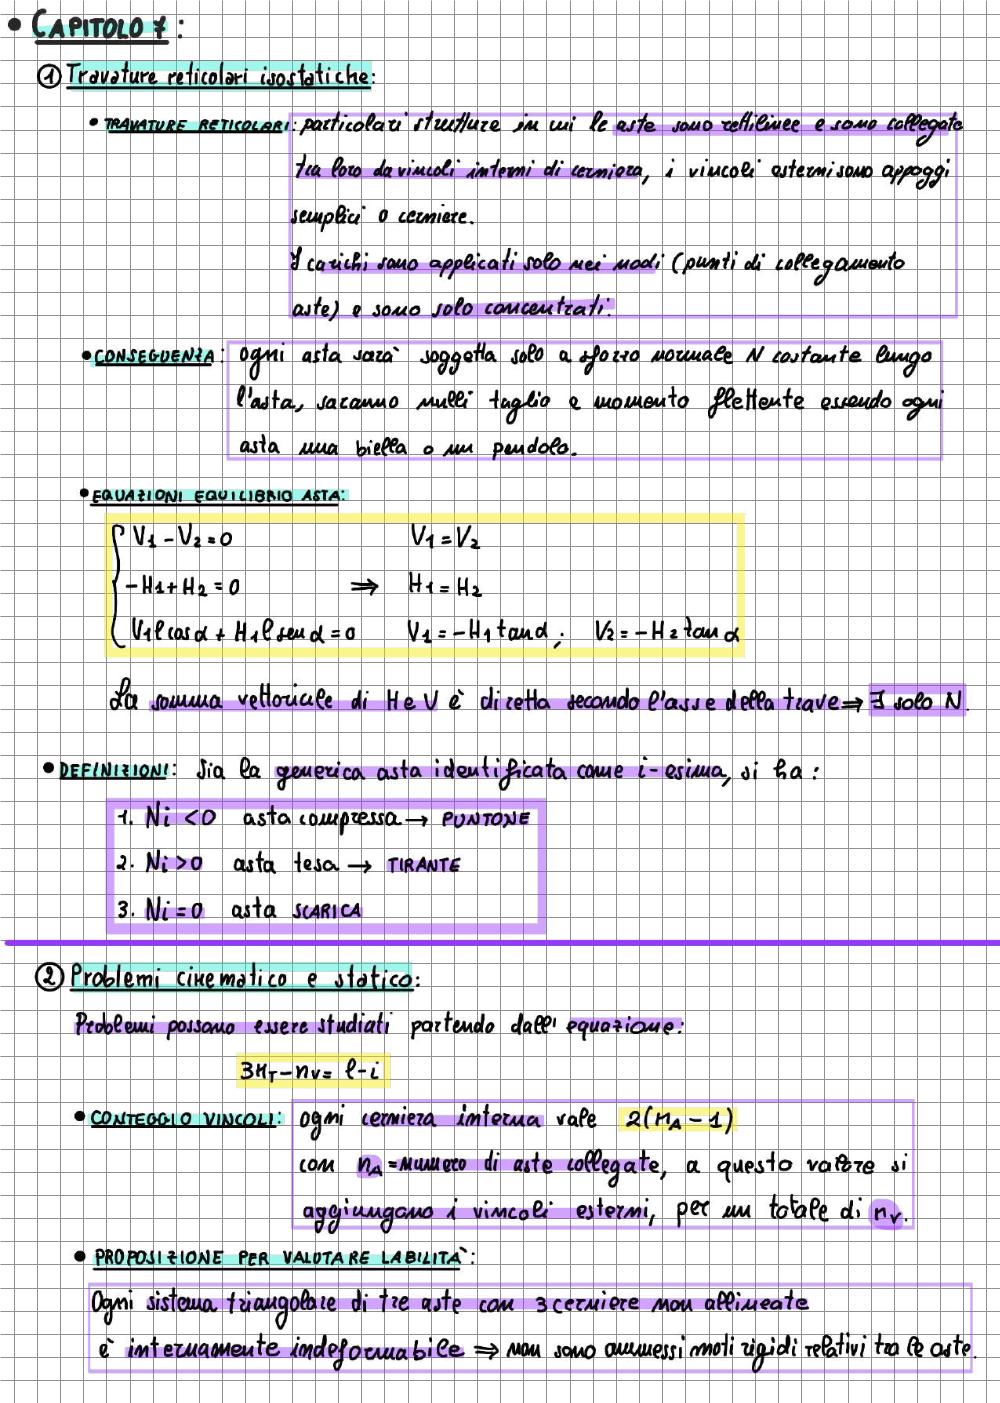 • CAPITOLO 7:
① Travature reticolari isostatiche:
• TRAVATURE RETICOLARI: particolari strutture in cui le aste sono rettilinee e sono collegate
tra loro da vincoli interni di cerniera, i vincoli esterni sono appoggi
semplici o cerniere.
I carichi sono applicati solo nei nodi (punti di collegamento
aste) e sono solo concentrati.
• CONSEGUENZA: ogni asta sarà soggetta solo a sforzo normale N costante lungo
l'asta, saranno nulli taglio e momento flettente essendo ogni
asta una biella o un pendolo.
• EQUAZIONI EQUILIBRIO ASTA:
V₁ - V₂ = 0 V₁ = V₂
-H₁ + H₂ = 0 ⇒ H₁ = H₂
V₁ℓ cosα + H₁ℓ senα = 0 V₁ = -H₁ tanα; V₂ = -H₂ tanα
La somma vettoriale di H e V è diretta secondo l'asse della trave ⇒ ∃ solo N.
• DEFINIZIONI: Sia la generica asta identificata come i-esima, si ha:
1. Ni <0 asta compressa → PUNTONE
2. Ni >0 asta tesa → TIRANTE
3. Ni = 0 asta SCARICA
② Problemi cinematico e statico:
Problemi possono essere studiati partendo dall'equazione:
3n_T - n_V = ℓ - i
• CONTEGGIO VINCOLI: ogni cerniera interna vale 2(n_A - 1)
con n_A = numero di aste collegate, a questo valore si
aggiungono i vincoli esterni, per un totale di n_V.
• PROPOSIZIONE PER VALUTARE LABILITÀ:
Ogni sistema triangolare di tre aste con 3 cerniere non allineate
è internamente indeformabile ⇒ non sono ammessi moti rigidi relativi tra le aste.